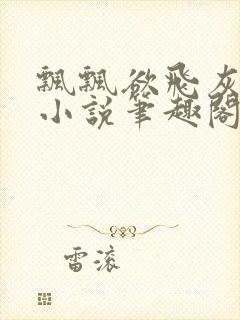 飄飄欲飛灰
小說筆趣閣
雷滚